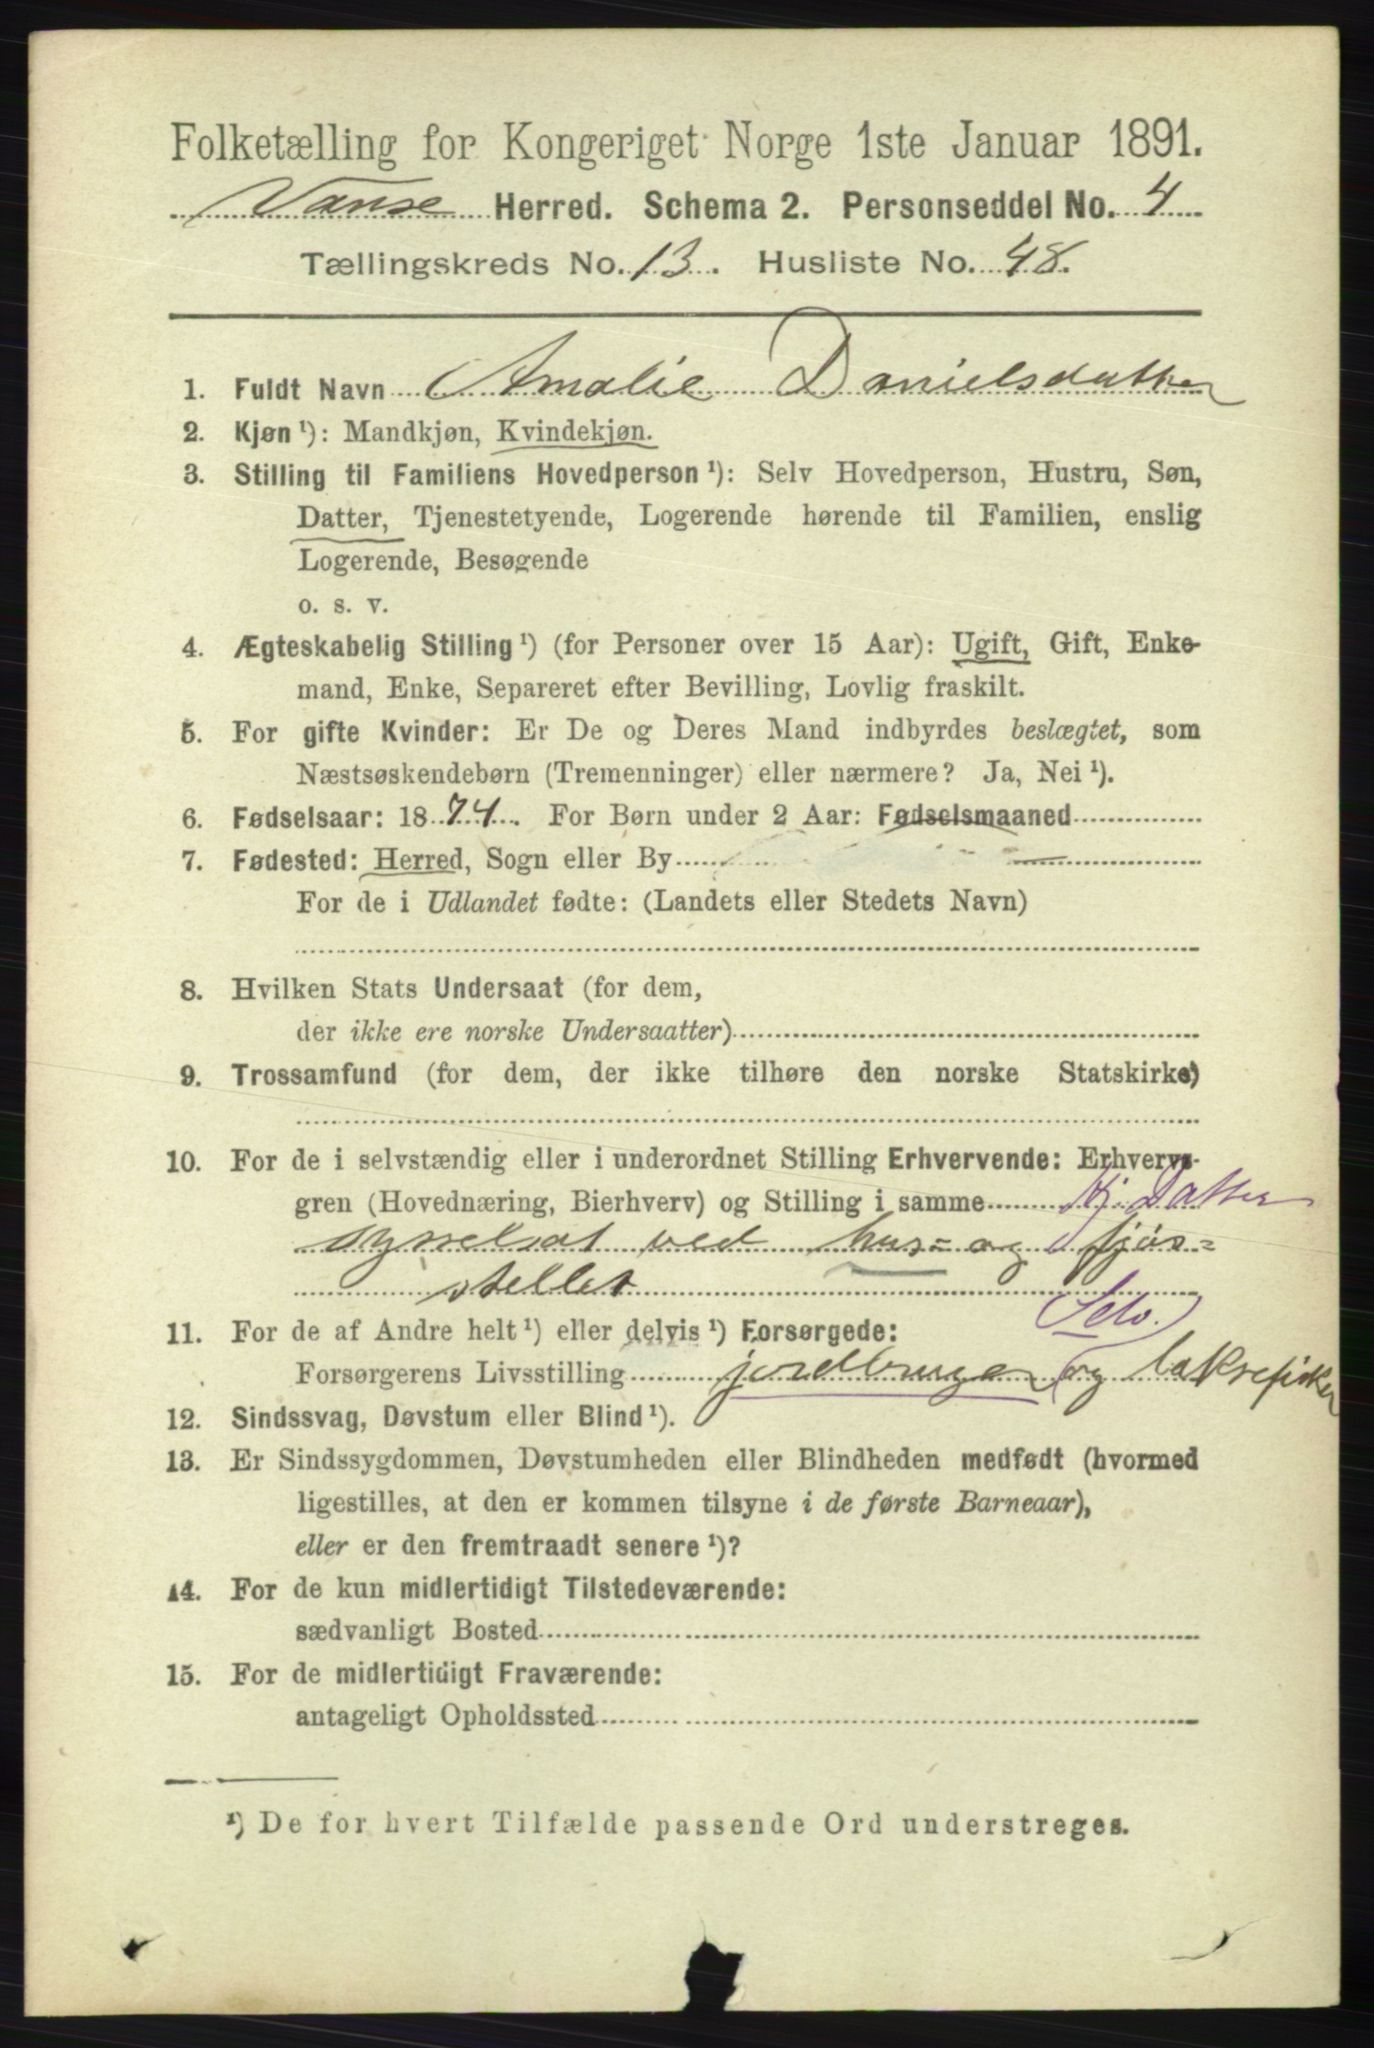 Folketælling for Kongeriget Norge 1ste Januar 1891.
Vanse Herred. Schema 2. Personseddel No. 4
Tællingskreds No. 13. Husliste No. 48.
1. Fuldt Navn Amalie Danielsdatter
2. Kjøn ¹): Mandkjøn, Kvindekjøn.
3. Stilling til Familiens Hovedperson ¹): Selv Hovedperson, Hustru, Søn,
Datter, Tjenestetyende, Logerende hørende til Familien, enslig
Logerende, Besøgende
o. s. v.
4. Ægteskabelig Stilling ¹) (for Personer over 15 Aar): Ugift, Gift, Enke-
mand, Enke, Separeret efter Bevilling, Lovlig fraskilt.
5. For gifte Kvinder: Er De og Deres Mand indbyrdes beslægtet, som
Næstsøskendebørn (Tremenninger) eller nærmere? Ja, Nei ¹).
6. Fødselsaar: 1874. For Børn under 2 Aar: Fødselsmaaned
7. Fødested: Herred, Sogn eller By
For de i Udlandet fødte: (Landets eller Stedets Navn)
8. Hvilken Stats Undersaat (for dem,
der ikke ere norske Undersaatter)
9. Trossamfund (for dem, der ikke tilhøre den norske Statskirke)
10. For de i selvstændig eller i underordnet Stilling Erhvervende: Erhvervs-
gren (Hovednæring, Bierhverv) og Stilling i samme Hj. Datter
sysselsat ved hus= og fjøs=
stellet
11. For de af Andre helt ¹) eller delvis ¹) Forsørgede: Selv.
Forsørgerens Livsstilling jordbruger og laksefisker
12. Sindssvag, Døvstum eller Blind ¹).
13. Er Sindssygdommen, Døvstumheden eller Blindheden medfødt (hvormed
ligestilles, at den er kommen tilsyne i de første Barneaar),
eller er den fremtraadt senere ¹)?
14. For de kun midlertidigt Tilstedeværende:
sædvanligt Bosted
15. For de midlertidigt Fraværende:
antageligt Opholdssted
¹) De for hvert Tilfælde passende Ord understreges.